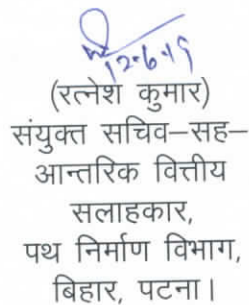 12-6-19
(रत्नेश कुमार)
संयुक्त सचिव–सह–
आन्तरिक वित्तीय
सलाहकार,
पथ निर्माण विभाग,
बिहार, पटना।